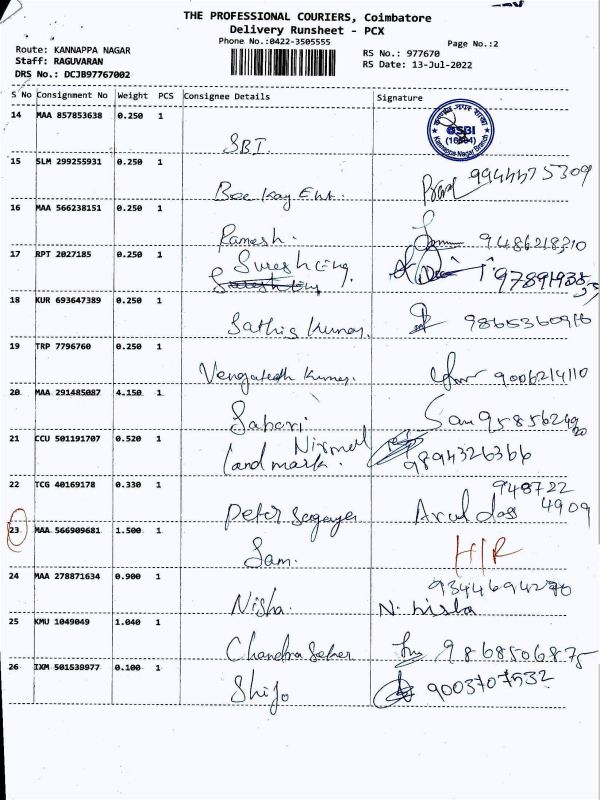 THE PROFESSIONAL COURIERS, Coimbatore
Delivery Runsheet - PCX
Phone No.:0422-3505555
Page No.:2
Route: KANNAPPA NAGAR
RS No.: 977670
Staff: RAGUVARAN
RS Date: 13-Jul-2022
DRS No.: DCJB97767002
S No Consignment No Weight PCS Consignee Details Signature
14 MAA 857853638 0.250 1
SBI
SBI
Kannappa Nagar Branch
15 SLM 299255931 0.250 1
Bee Kay Ent. 9944575309
16 MAA 566238151 0.250 1
Ramesh. 9486218310
17 RPT 2027185 0.250 1
Suresh
18 KUR 693647389 0.250 1
Sathis Kumar. 9865360916
19 TRP 7796760 0.250 1
Vengatesh Kumar. 9006214110
20 MAA 291485087 4.150 1
Sabari
21 CCU 501191707 0.520 1
Nirmal
Landmark. 9894326366
22 TCG 40169178 0.330 1
948722
4909
Peter Arul dass
23 MAA 566909681 1.500 1
Sam. H/R
24 MAA 278871634 0.900 1
Nisha. N. Nisha
25 KMU 1049049 1.040 1
Chandra Seker 9868506875
26 IXM 501539977 0.100 1
Shijo 9003707532